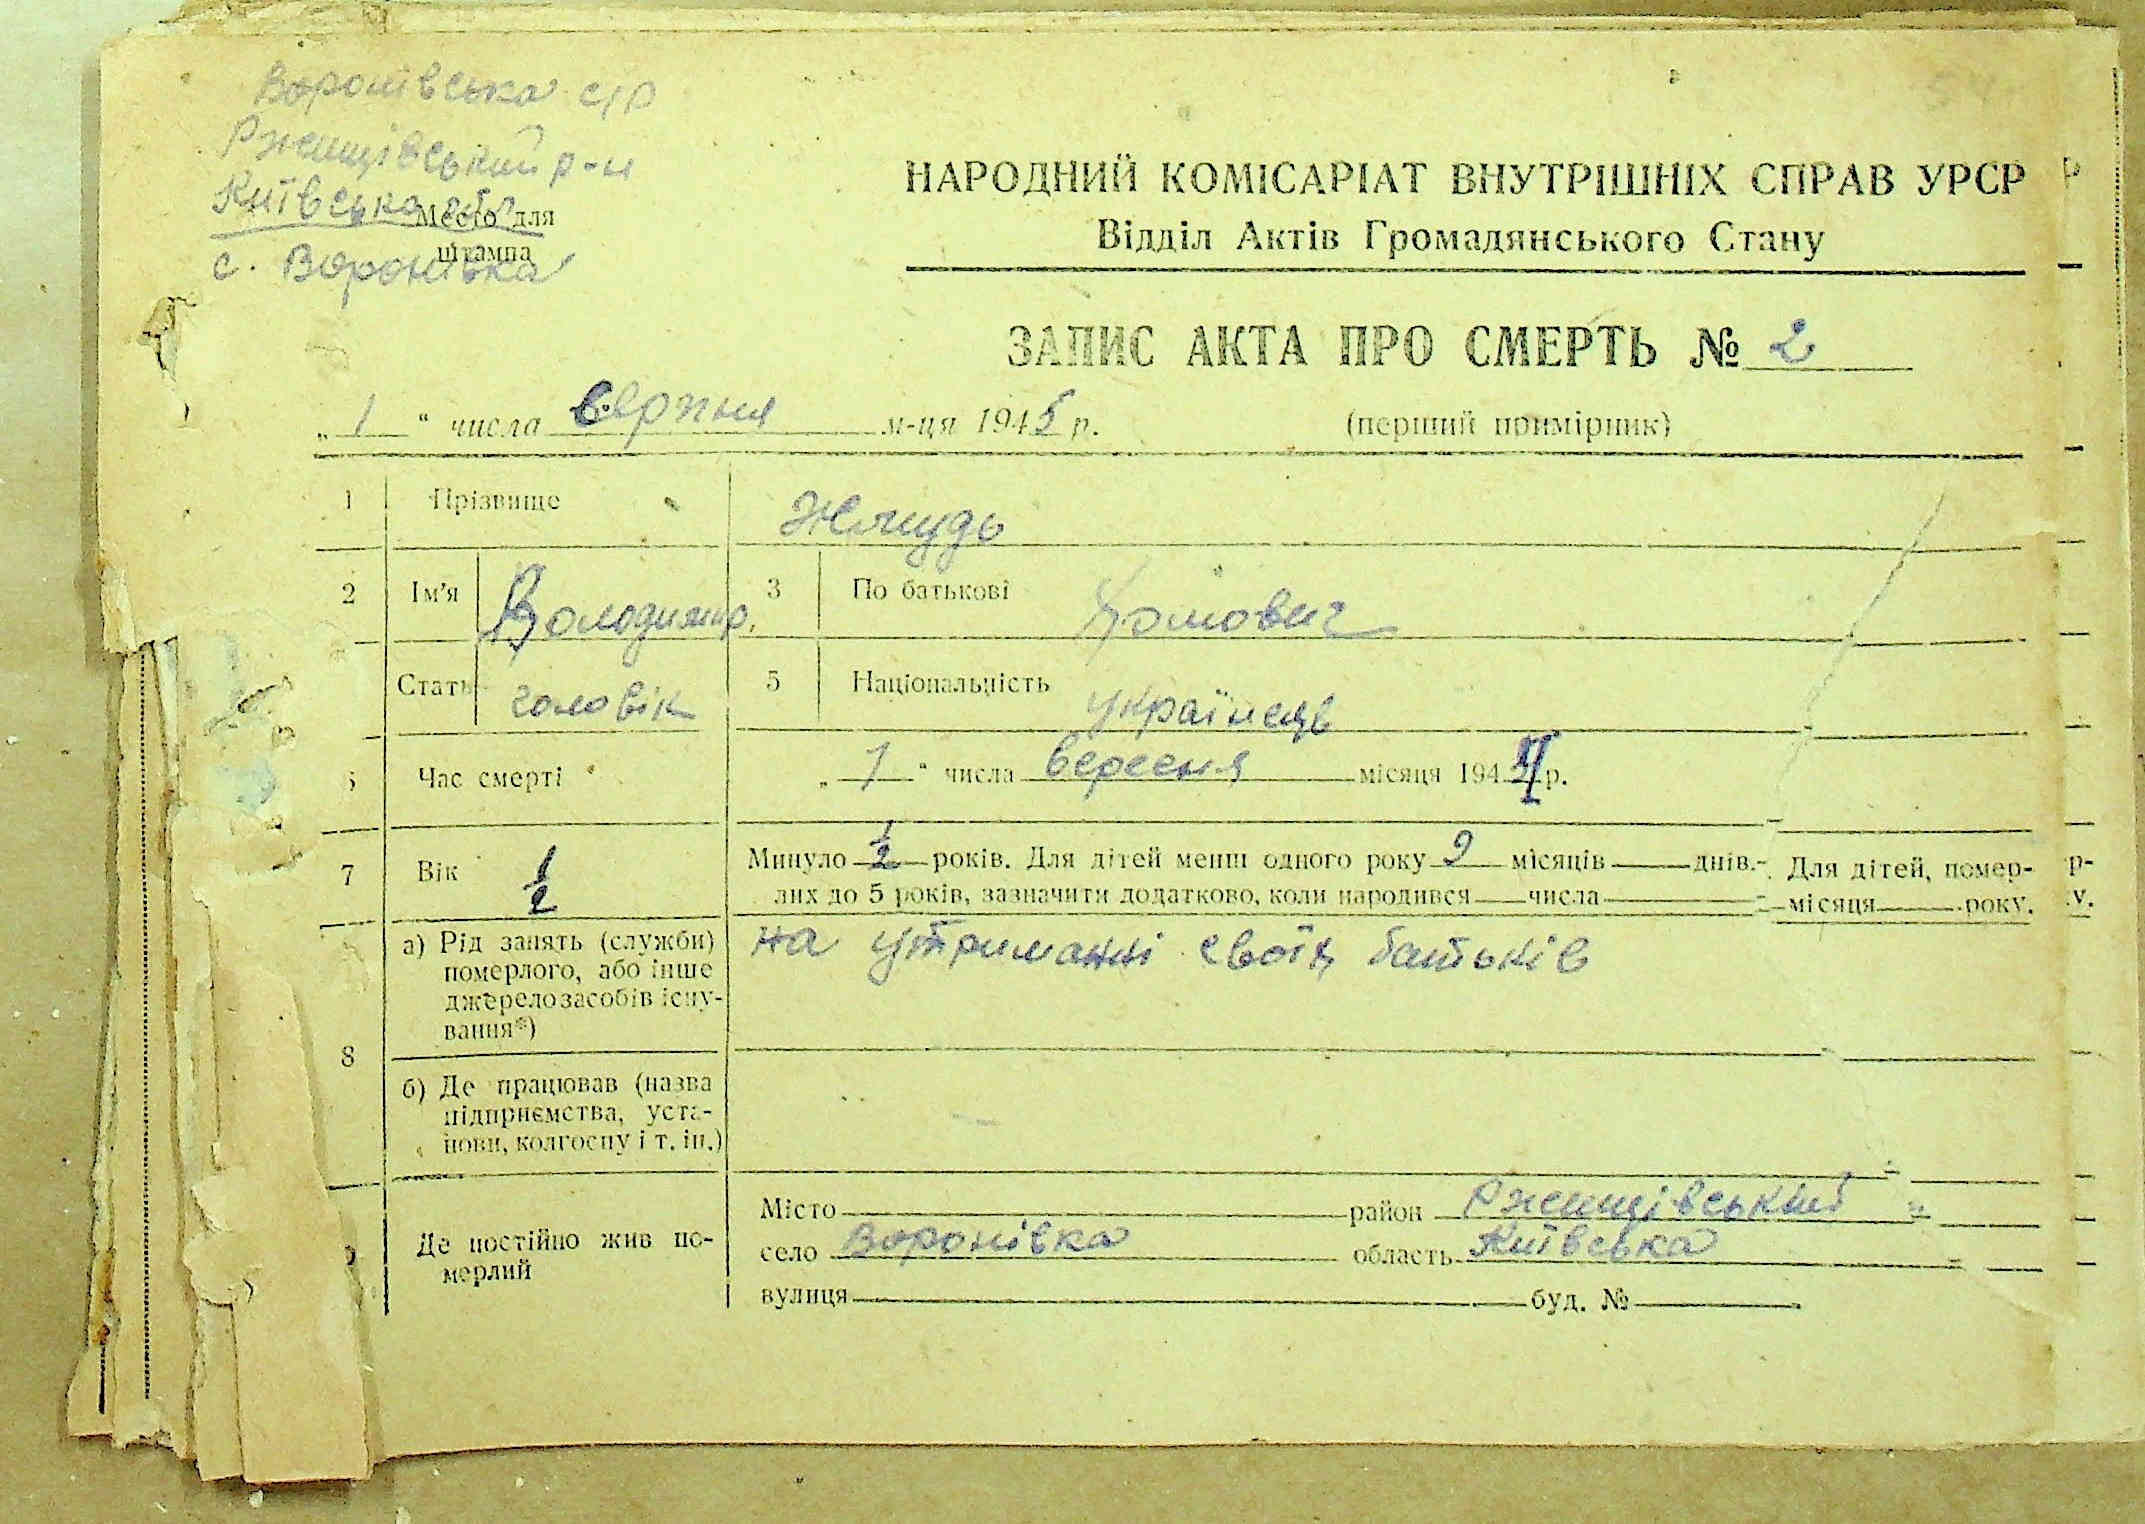 Воронівська с/р
Ржищівський р-н
Київська обл
Место для
штампа
с. Воронівка
НАРОДНИЙ КОМІСАРІАТ ВНУТРІШНІХ СПРАВ УРСР
Відділ Актів Громадянського Стану
ЗАПИС АКТА ПРО СМЕРТЬ № 2
„ 1 " числа Серпня м-ця 1945 р. (перший примірник)
1 Прізвище Жмудь
2 Ім'я Володимир. 3 По батькові Хомович
Стать чоловік 5 Національність українець
Час смерті „ 1 " числа вересня місяця 1944 р.
7 Вік 1/2 Минуло 1/2 років. Для дітей менш одного року 2 місяців днів. Для дітей, помер-
лих до 5 років, зазначити додатково, коли народився числа місяця року.
8 а) Рід занять (служби) померлого, або інше джерело засобів існу-вання*) на утриманні своїх батьків
б) Де працював (назва підприємства, уста-нови, колгоспу і т. ін.)
Де постійно жив по-мерлий
Місто район Ржищівський
село Воронівка область Київська
вулиця буд. №